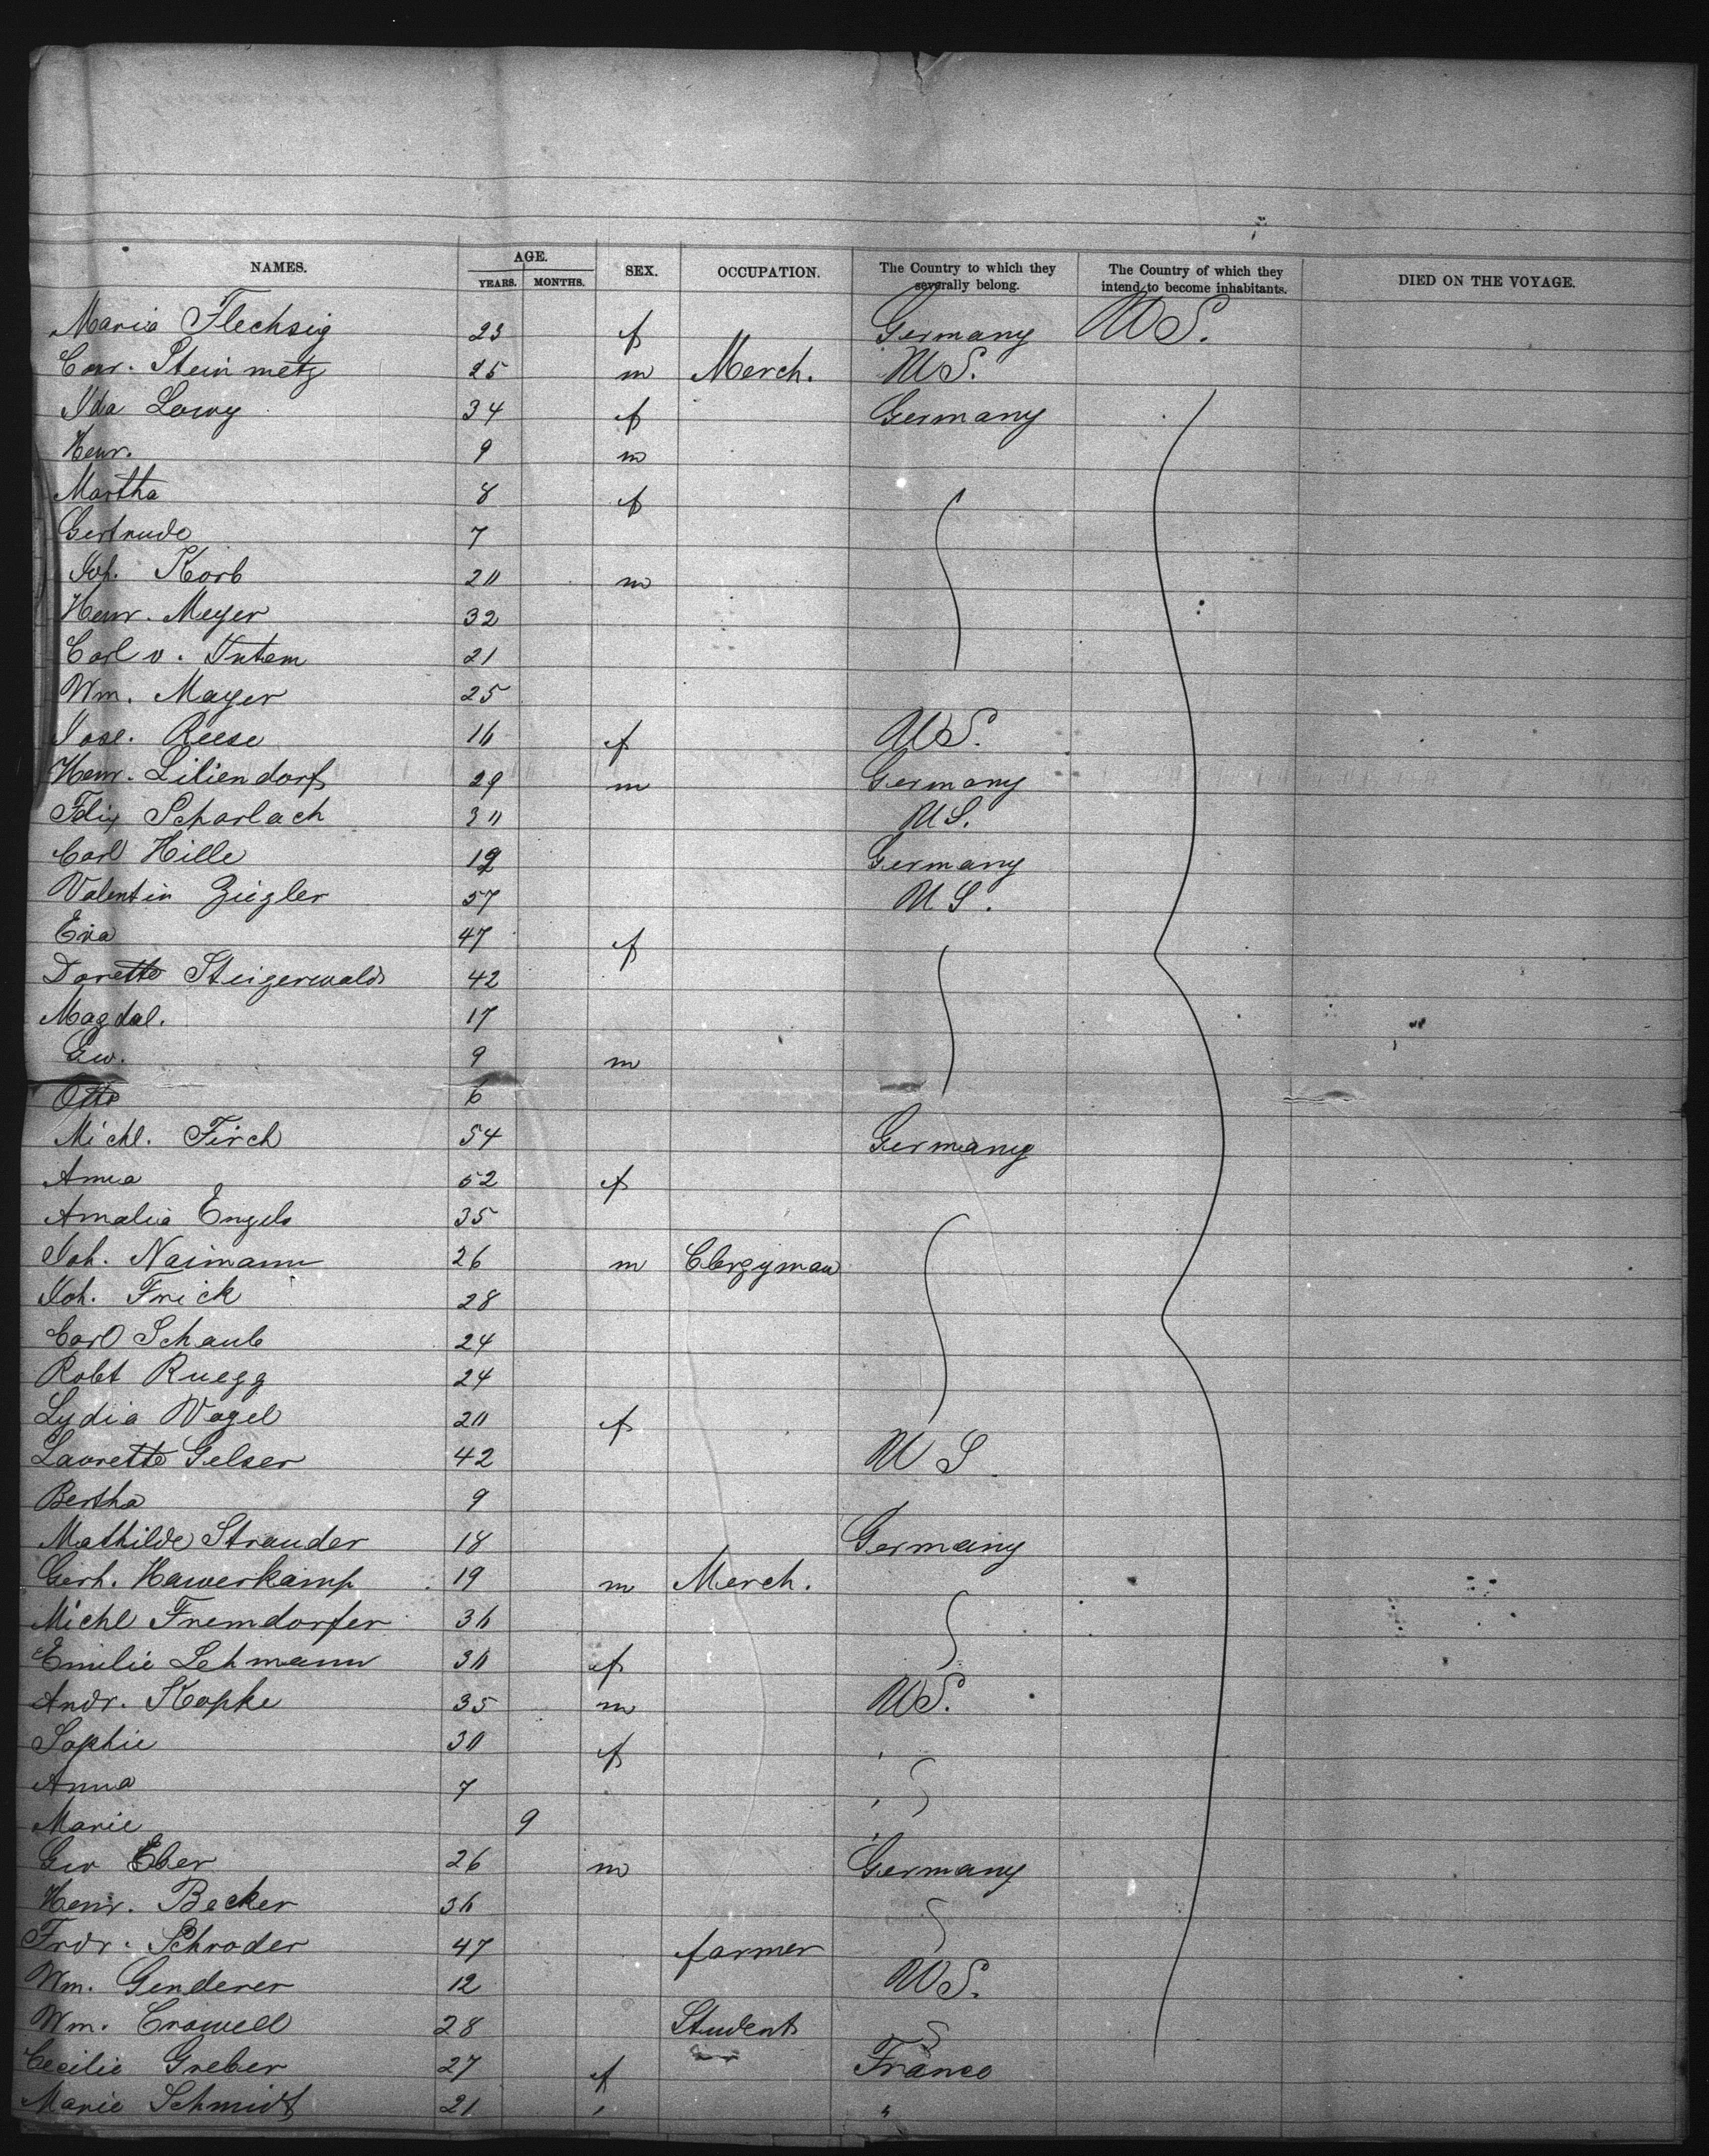 NAMES. AGE. YEARS. MONTHS. SEX. OCCUPATION. The Country to which they severally belong. The Country of which they intend to become inhabitants. DIED ON THE VOYAGE.
Maria Flechsig 23 f Germany U.S.
Conr. Steinmetz 25 m Merch. U.S.
Ida Lowy 34 f Germany
Henr. 9 m
Martha 8 f
Gertrude 7
Joh. Korb 20 m
Henr. Meyer 32
Carl v. Intem 21
Wm. Mayer 25
Jose. Reese 16 f U.S.
Henr. Liliendorf 29 m Germany
Felix Scharlach 30 U.S.
Carl Hille 19 Germany
Valentin Ziegler 57 U.S.
Eva 47 f
Dorette Steigerwald 42
Magdal. 17
Geo. 9 m
Otto 6
Michl. Firch 54 Germany
Anna 52 f
Amalia Engels 35
Joh. Naimann 26 m Clergyman
Joh. Frick 28
Carl Schaub 24
Robt Ruegg 24
Lydia Vogel 20 f
Laurette Gelser 42 U S
Bertha 9
Mathilde Strauder 18 Germany
Gerh. Hawerkamp 19 m Merch.
Michl Fremdorfer 36
Emilie Lehmann 30 f
Andr. Kopke 35 m U.S.
Sophie 30 f
Anna 7
Marie 9
Geo Eber 26 m Germany
Henr. Becker 36
Frdr. Schroder 47 farmer
Wm. Genderer 12 U.S.
Wm. Crowell 28 Student
Cecilie Greber 27 f France
Marie Schmidt 21 " "